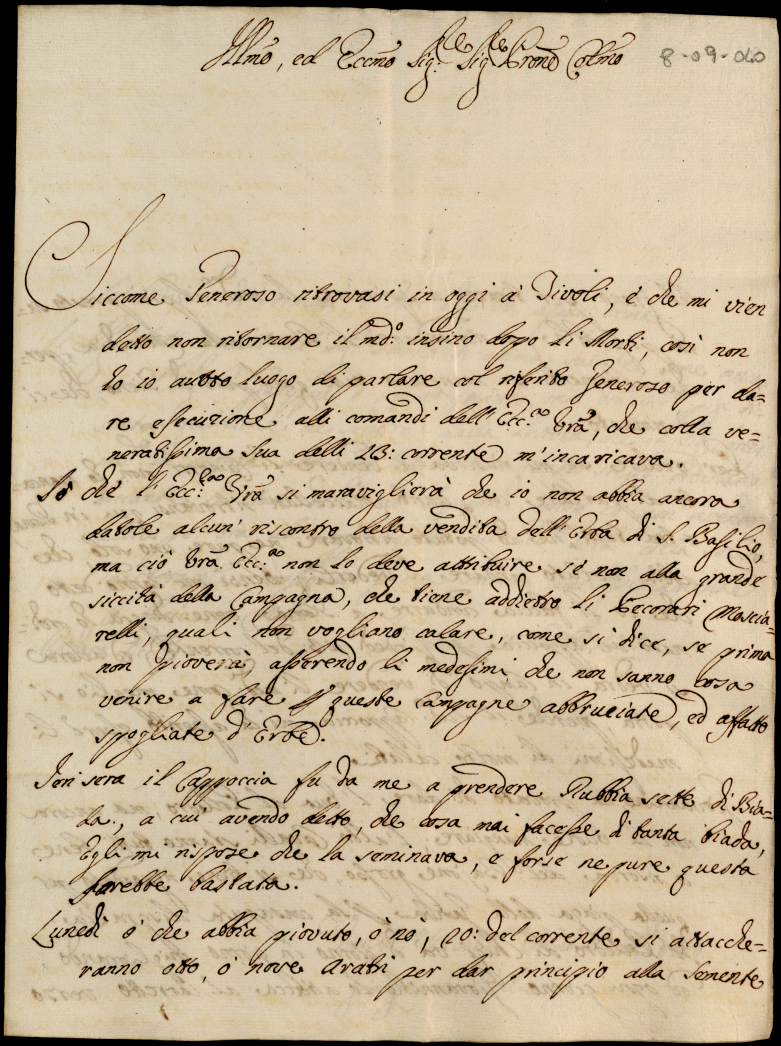 Illmo, ed Eccmo Sig.re Sig.re Prone Colmo
8-09-060
Siccome Generoso ritrovasi in oggi à Tivoli, e che mi vien
detto non ritornare il md:o insino dopo li Morti, così non
hò io autto luogo di parlare col riferito Generoso per da=
re esecuzione alli comandi dell'Ecc:za Vra, che colla ve=
neratissima sua delli 23: corrente m'incaricava.
Sò che l'Ecc:za Vra si maraviglierà che io non abbia ancora
datole alcun' riscontro della vendita dell'Erba di S. Basilio,
ma ciò Vra Ecc:za non lo deve attribuire se non alla grande
siccità della Campagna, che tiene addietro li Pecorari Moscia=
relli, quali non vogliano calare, come si dice, se prima
non pioverà, asserendo li medesimi, che non sanno cosa
venire a fare p queste Campagne abbruciate, ed affatto
spogliate d'Erbe.
Ieri sera il Cappoccia fu da me a prendere Rubbia sette di Bia=
da, a cui avendo detto, che cosa mai facesse di tanta biada,
Egli mi rispose che la seminava, e forse ne pure questa
sarebbe bastata.
Lunedì ò che abbia piovuto, ò nò, 20: del corrente si attacche=
ranno otto, ò nove aratri per dar principio alla Semente